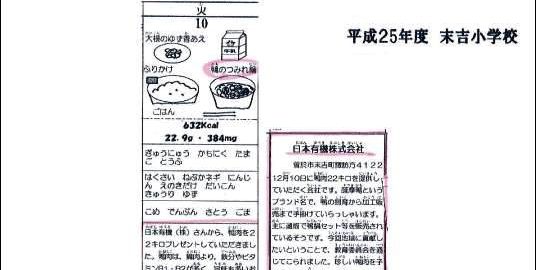 平成25年度 末吉小学校
火
10
大根のゆず香あえ
牛乳
ふりかけ
鴨のつみれ鍋
ごはん
632Kcal
22.9g・384mg
ぎゅうにゅう かもにく たま
ご とうふ
はくさい ねぶかネギ にんじ
ん えのきだけ だいこん
きゅうり ゆず
こめ でんぷん さとう ごま
日本有機（株）さんから、鴨肉を2
2キロプレゼントしていただきまし
た。鴨肉は、鶏肉より、鉄分やビタ
日本有機株式会社
曽於市末吉町諏訪方4122
12月10日に鴨肉22キロを提供し
ていただく会社です。薩摩鴨という
ブランド名で、鴨の飼育から加工販
売まで手掛けていらっしゃいます。
主に通販で鴨鍋セット等を販売され
ているそうです。今回地域に貢献し
たいということで、教育委員会を通
じてこられました。珍しい鴨肉を子